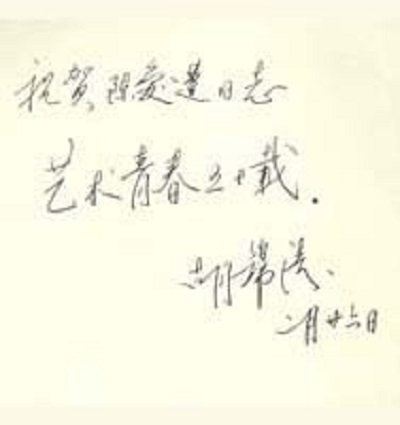 祝贺陈爱莲同志
艺术青春五十载.
胡锦涛
二月廿六日